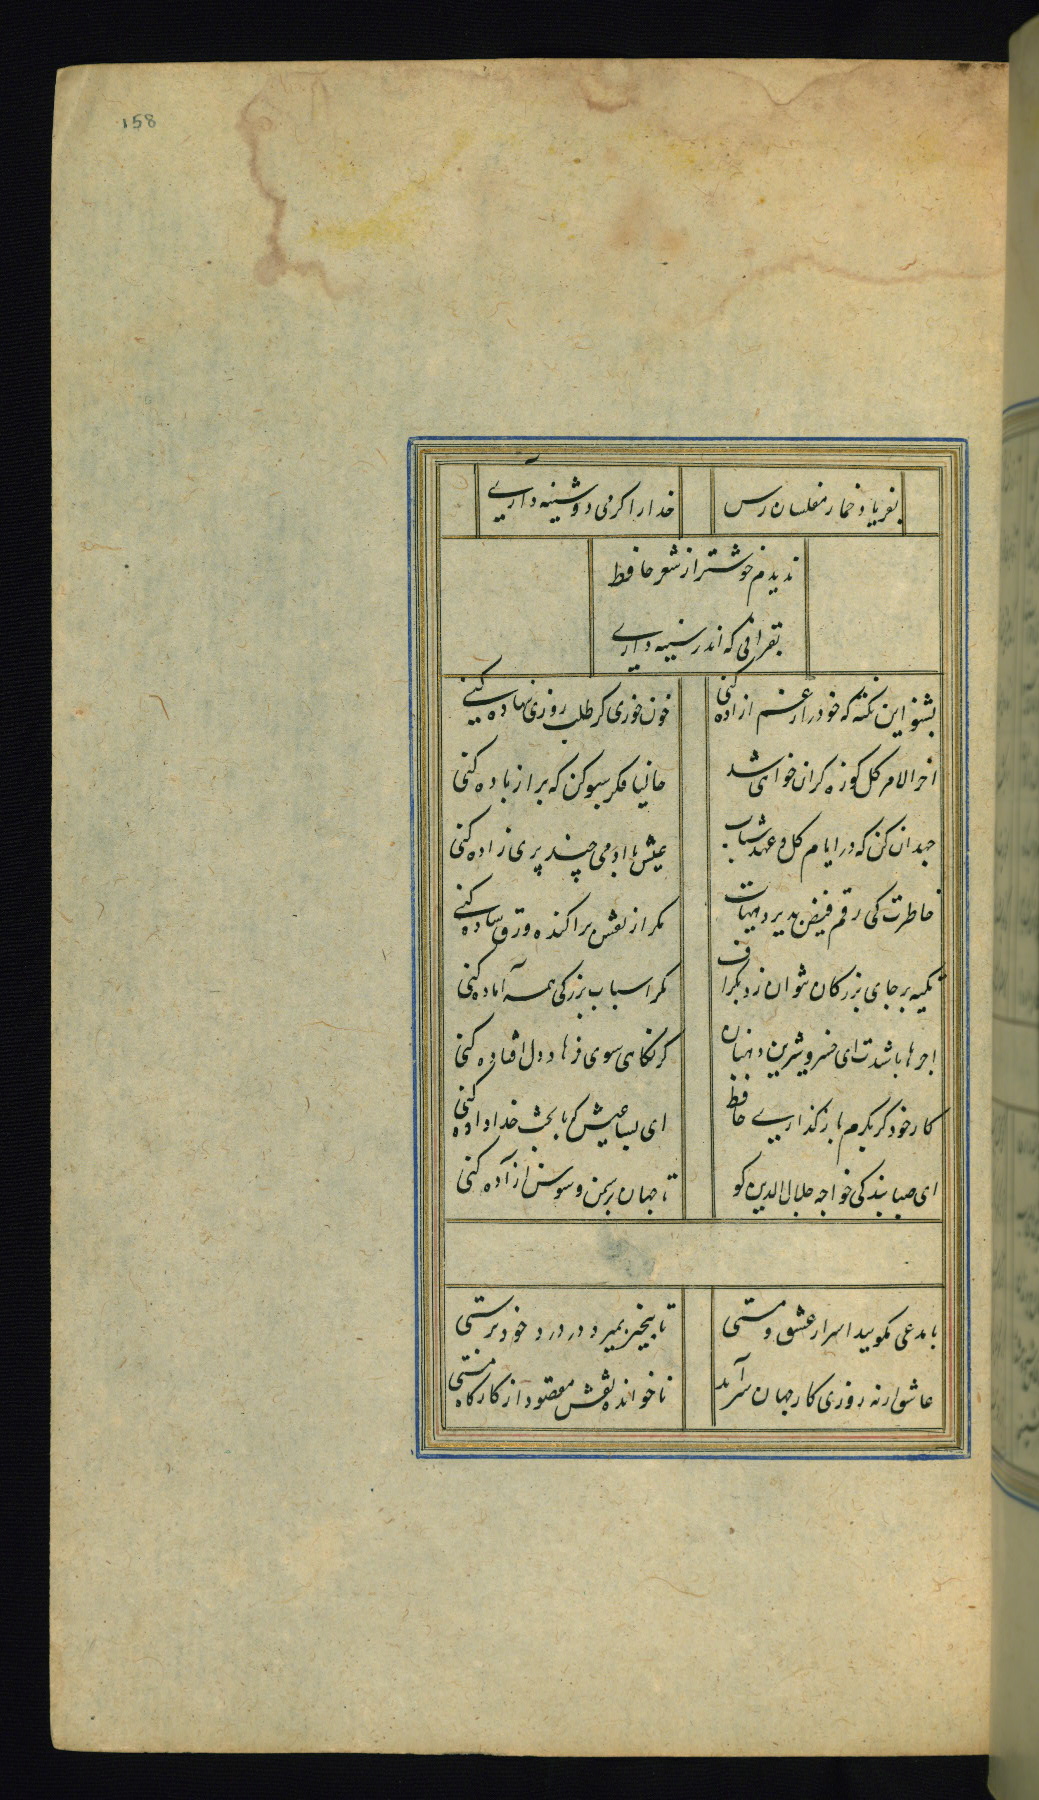 158
بفریاد خمار مفلسان رس
خدارا کرمی دوشینه داری
ندیدم خوشتر از شعر حافظ
بقرآنی که اندر سینه داری
بشنو این نکته که خود را ز غم ازاده کنی
خون خوری کر طلب روزی ننهاده کنی
اخر الامر کل کوزه کران خواهی شد
حالیا فکر سبو کن که پر از باده کنی
جهد ان کن که در ایام کل و عهد شباب
عیش با ادمی چند پری زاده کنی
خاطرت کی رقم فیض پذیرد هیهات
مکر از نقش پراکنده ورق ساده کنی
تکیه بر جای بزرکان نتوان زد بکزاف
مکر اسباب بزرکی همه آماده کنی
اجرها باشدت ای خسرو شیرین دهنان
کر نکاهی سوی فرهاد دل افتاده کنی
کار خود کر بکرم باز کذاری حافظ
ای بسا عیش که با بخت خداداده کنی
ای صبا بندکی خواجه جلال الدین کو
تا جهان پر سمن و سوسن ازآده کنی
با مدعی مکویید اسرار عشق و مستی
تا بیخبر بمیرد در درد خودپرستی
عاشق ار نه روزی کار جهان سرآید
ناخوانده نقش مقصود از کارکاه هستی